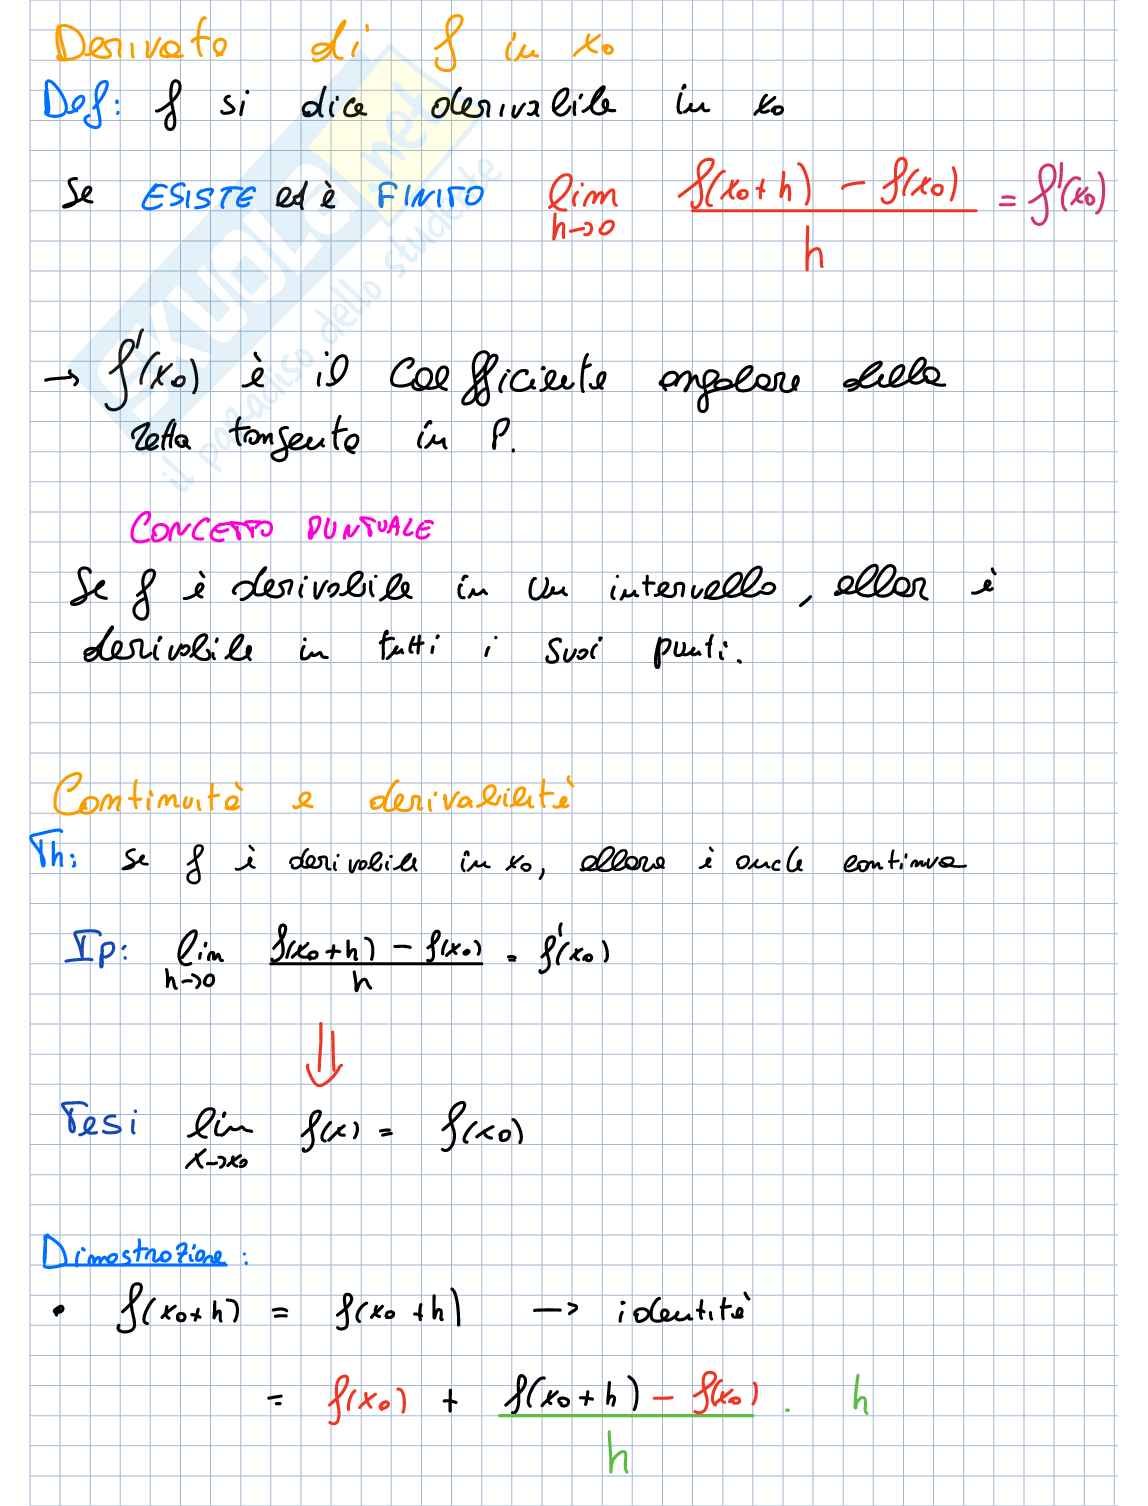 Derivata di f in x₀
Def: f si dice derivabile in x₀
Se ESISTE ed è FINITO lim h→0 (f(x₀+h) − f(x₀))/h = f'(x₀)
→ f'(x₀) è il coefficiente angolare della
retta tangente in P.
CONCETTO PUNTUALE
Se f è derivabile in un intervallo, allor è
derivabile in tutti i suoi punti.
Continuità e derivabilità
Th: se f è derivabile in x₀, allora è anche continua
Ip: lim h→0 (f(x₀+h) − f(x₀))/h = f'(x₀)
⇓
Tesi lim x→x₀ f(x) = f(x₀)
Dimostrazione:
• f(x₀+h) = f(x₀+h) → identità
= f(x₀) + (f(x₀+h) − f(x₀))/h · h
SKUOLA.net
il paradiso dello studente